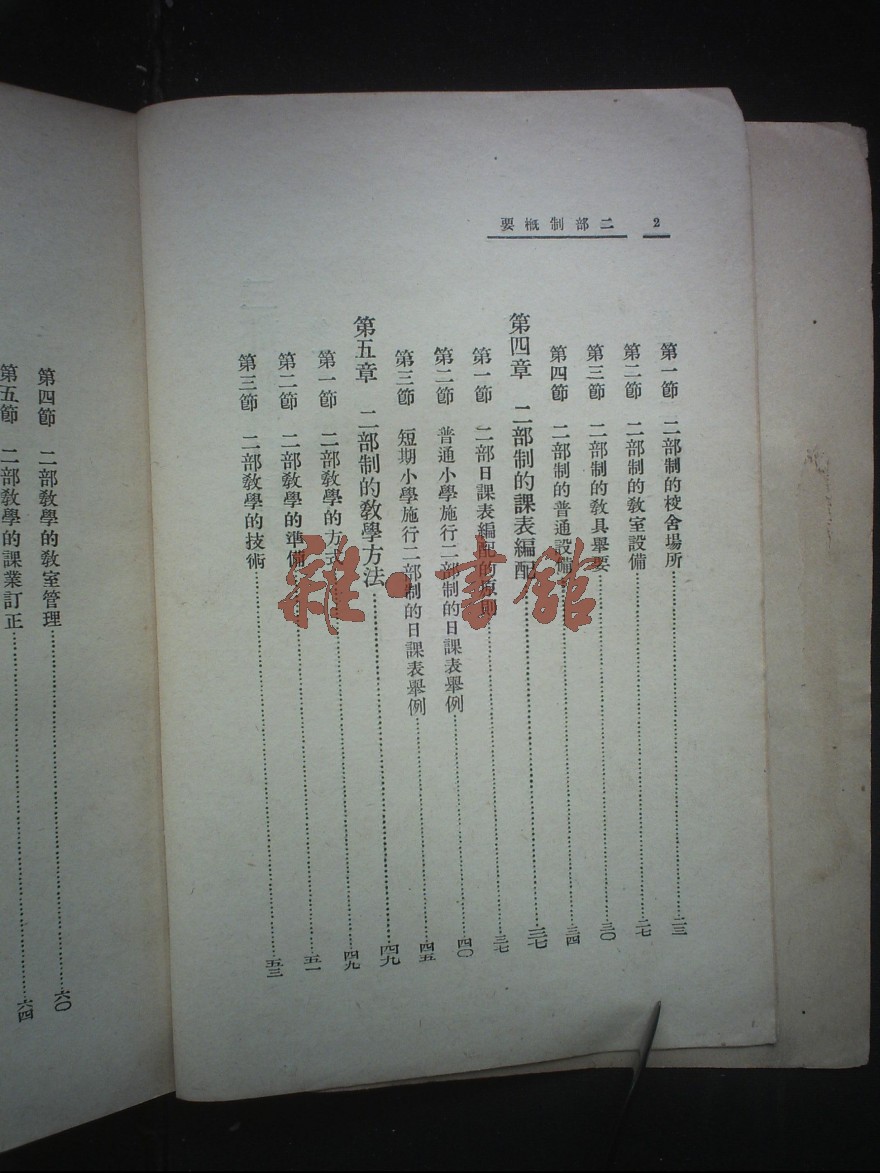 2　二部制概要
第一節　二部制的校舍場所……二三
第二節　二部制的教室設備……二七
第三節　二部制的教具舉要……三〇
第四節　二部制的普通設備……三四
第四章　二部制的課表編配……三七
第一節　二部日課表編配的原則……三七
第二節　普通小學施行二部制的日課表舉例……四〇
第三節　短期小學施行二部制的日課表舉例……四五
第五章　二部制的教學方法……四九
第一節　二部教學的方式……四九
第二節　二部教學的準備……五一
第三節　二部教學的技術……五三
第四節　二部教學的教室管理……六〇
第五節　二部教學的課業訂正……六四
雜·書館